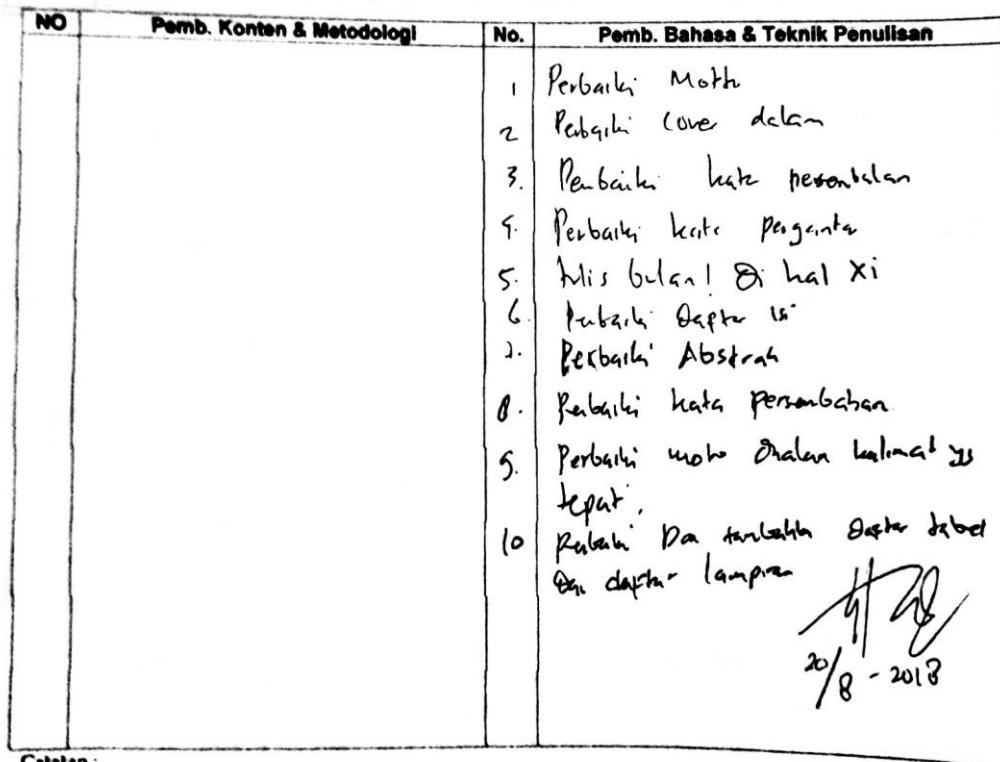 NO Pemb. Konten & Metodologi No. Pemb. Bahasa & Teknik Penulisan
1 Perbaiki Motto
2 Perbaiki Cover dalam
3. Perbaiki kata
4. Perbaiki kata
5. Tulis bulan! Di hal xi
6. Perbaiki Daftar isi
7. Perbaiki Abstrak
8. Perbaiki kata persembahan
9. Perbaiki moto kalimat yg
tepat.
10 Perbaiki Dan Daftar tabel
Dan daftar lampiran
20/8-2018
Catatan :